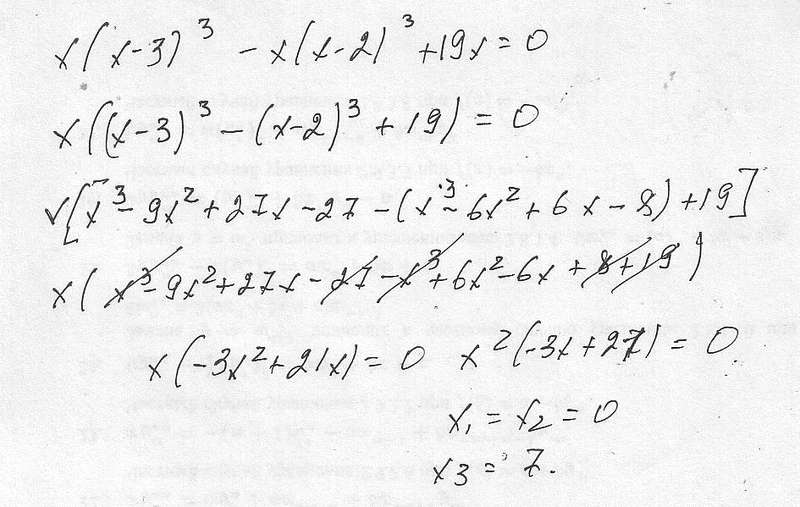 x(x-3)³ - x(x-2)³ + 19x = 0
x((x-3)³ - (x-2)³ + 19) = 0
x[x³ - 9x² + 27x - 27 - (x³ - 6x² + 6x - 8) + 19]
x(x³ - 9x² + 27x - 27 - x³ + 6x² - 6x + 8 + 19)
x(-3x² + 21x) = 0 x²(-3x + 21) = 0
x₁ = x₂ = 0
x3 = 7.